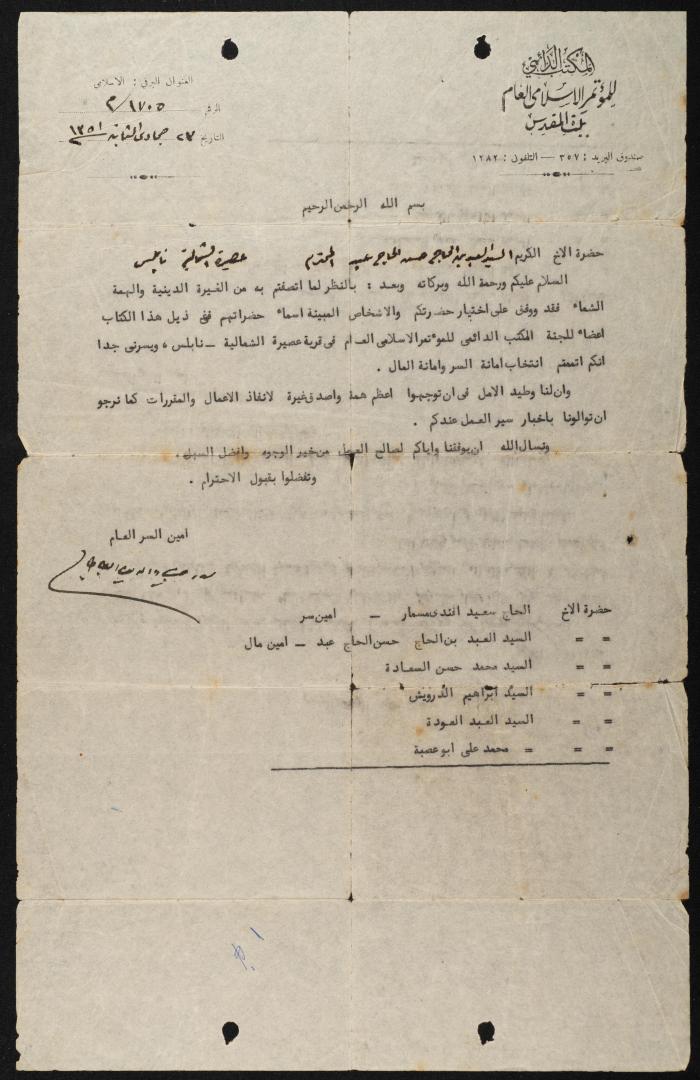 المكتب الدائمي
للمؤتمر الاسلامي العام
ببيت المقدس
صندوق البريد : ٣٥٧ — التلفون : ١٢٨٢
العنوان البرقي : الاسلامي
الرقم ١٧٠٥/م
التاريخ ٢٣ جمادى الثانية ١٣٥١
بسم الله الرحمن الرحيم
حضرة الاخ الكريم السيد العبد بن الحاج حسن الحاج عبد المحترم عصيرة الشمالية نابلس
السلام عليكم ورحمة الله وبركاته وبعد : بالنظر لما اتصفتم به من الغيرة الدينية والهمة
الشماء فقد ووفق على اختيار حضرتكم والاشخاص المبينة اسماء حضراتهم في ذيل هذا الكتاب
اعضاء للجنة المكتب الدائمي للموءتمر الاسلامي العام في قرية عصيرة الشمالية — نابلس ، ويسرني جدا
انكم اتممتم انتخاب امانة السر وامانة المال .
وان لنا وطيد الامل في ان توجهوا اعظم همة واصدق غيرة لانفاذ الاعمال والمقررات كما نرجو
ان توالونا باخبار سير العمل عندكم .
ونسال الله ان يوفقنا واياكم لصالح العمل من خير الوجوه وافضل السبل .
وتفضلوا بقبول الاحترام .
امين السر العام
حضرة الاخ الحاج سعيد افندي مسمار — امين سر
= = السيد العبد بن الحاج حسن الحاج عبد — امين مال
= = السيد محمد حسن السعادة
= = السيد ابراهيم الدرويش
= = السيد العبد العودة
= = = محمد علي ابو عصبة